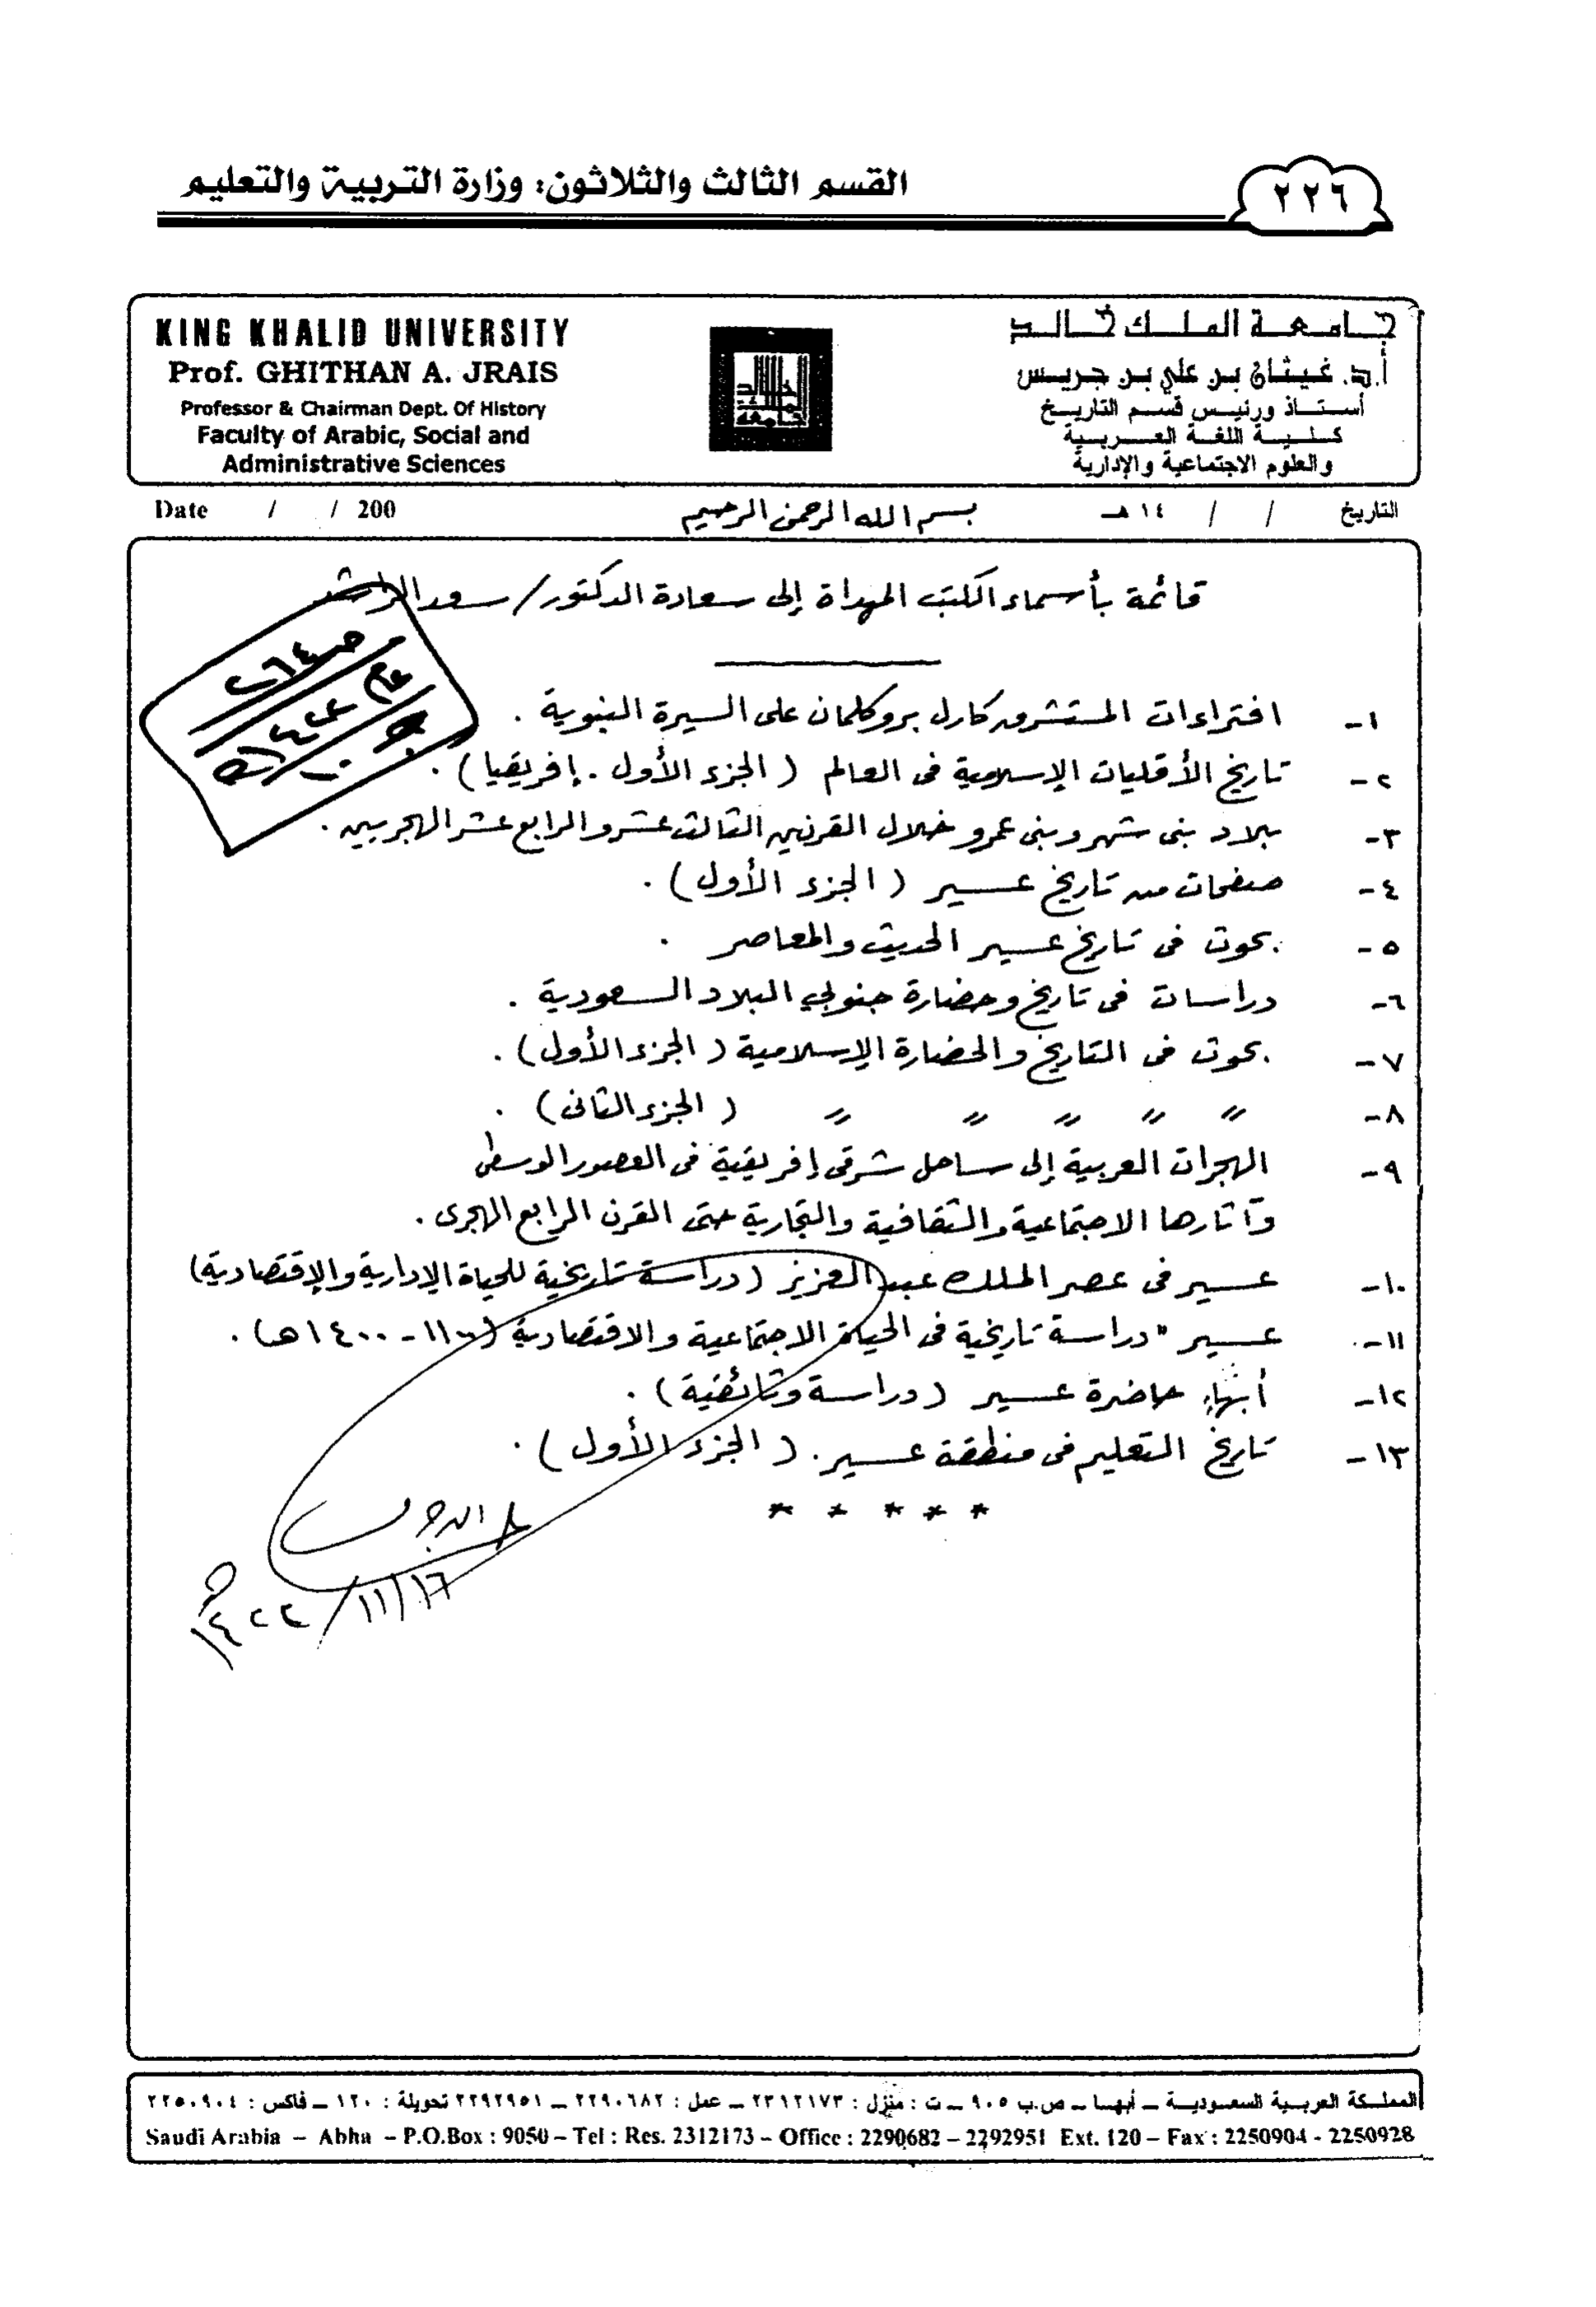 القسم الثالث والثلاثون: وزارة التربية والتعليم
٢٢٦
KING KHALID UNIVERSITY
Prof. GHITHAN A. JRAIS
Professor & Chairman Dept. Of History
Faculty of Arabic, Social and
Administrative Sciences
جامعة الملك خالد
أ.د. غيثان بن علي بن جريس
أستاذ ورئيس قسم التاريخ
كلية اللغة العربية
والعلوم الاجتماعية والإدارية
Date / / 200
بسم الله الرحمن الرحيم
التاريخ / / ١٤ هـ
قائمة بأسماء الكتب المهداة إلى سعادة الدكتور/ سعد الراشد
١- افتراءات المستشرق كارل بروكلمان على السيرة النبوية .
٢- تاريخ الأقليات الإسلامية فى العالم ( الجزء الأول . إفريقيا ) .
٣- بلاد بنى شهر وبنى عمرو خلال القرنين الثالث عشر والرابع عشر الهجريين .
٤- صفحات من تاريخ عسير ( الجزء الأول ) .
٥- بحوث فى تاريخ عسير الحديث والمعاصر .
٦- دراسات فى تاريخ وحضارة جنوبي البلاد السعودية .
٧- بحوث فى التاريخ والحضارة الإسلامية ( الجزء الأول ) .
٨- 〃 〃 〃 〃 〃 ( الجزء الثانى ) .
٩- الهجرات العربية إلى ساحل شرقى إفريقية فى العصور الوسطى
وآثارها الاجتماعية والثقافية والتجارية حتى القرن الرابع الهجرى .
١٠- عسير فى عصر الملك عبدالعزيز ( دراسة تاريخية للحياة الإدارية والإقتصادية )
١١- عسير " دراسة تاريخية فى الحياة الاجتماعية والاقتصادية ( ١١٠٠ - ١٤٠٠هـ ) .
١٢- أبها، حاضرة عسير ( دراسة وثائقية ) .
١٣- تاريخ التعليم فى منطقة عسير . ( الجزء الأول ) .
* * * * *
١٦/١١/١٤٢٢هـ
المملكة العربية السعودية ــ أبهـا ــ ص.ب ٩٠٥ ــ ت : منزل : ٢٣١٢١٧٣ ــ عمل : ٢٢٩٠٦٨٢ ــ ٢٢٩٢٩٥١ تحويلة : ١٢٠ ــ فاكس : ٢٢٥٠٩٠٤
Saudi Arabia – Abha – P.O.Box : 9050 – Tel : Res. 2312173 – Office : 2290682 – 2292951 Ext. 120 – Fax : 2250904 - 2250928